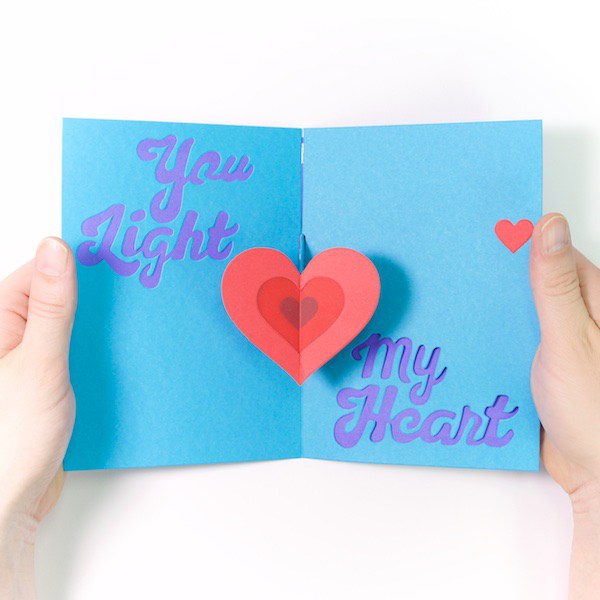 You
Light
My
Heart